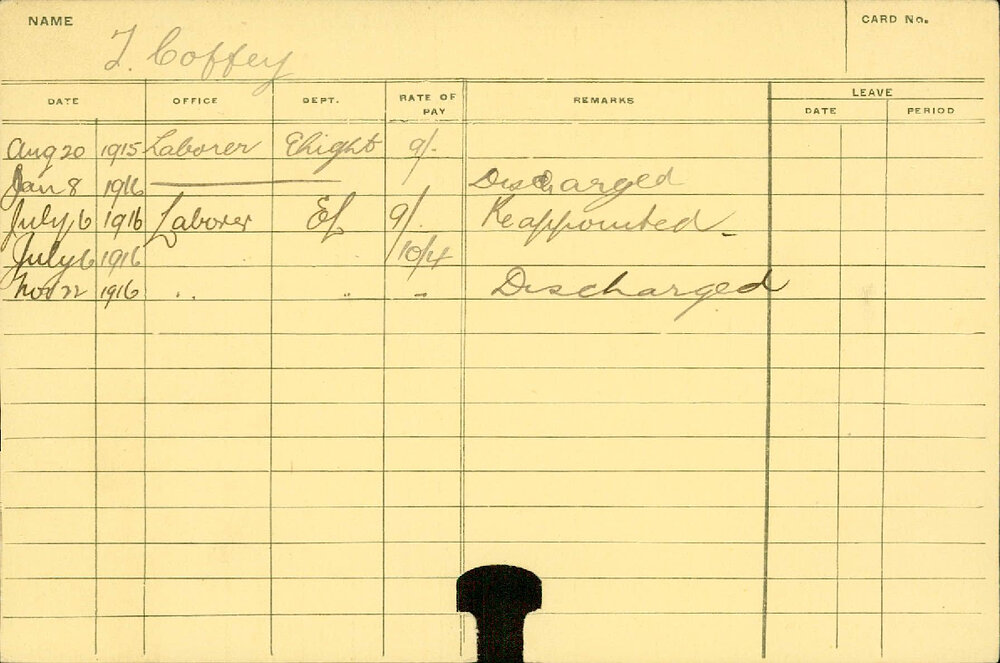 NAME CARD No.
T. Coffey
DATE OFFICE DEPT. RATE OF PAY REMARKS LEAVE
DATE PERIOD
Aug 20 1915 Laborer Elight 9/-
Jan 8 1916 Discharged
July 6 1916 Laborer El 9/- Reappointed
July 6 1916 10/4
Nov 22 1916 " " - Discharged